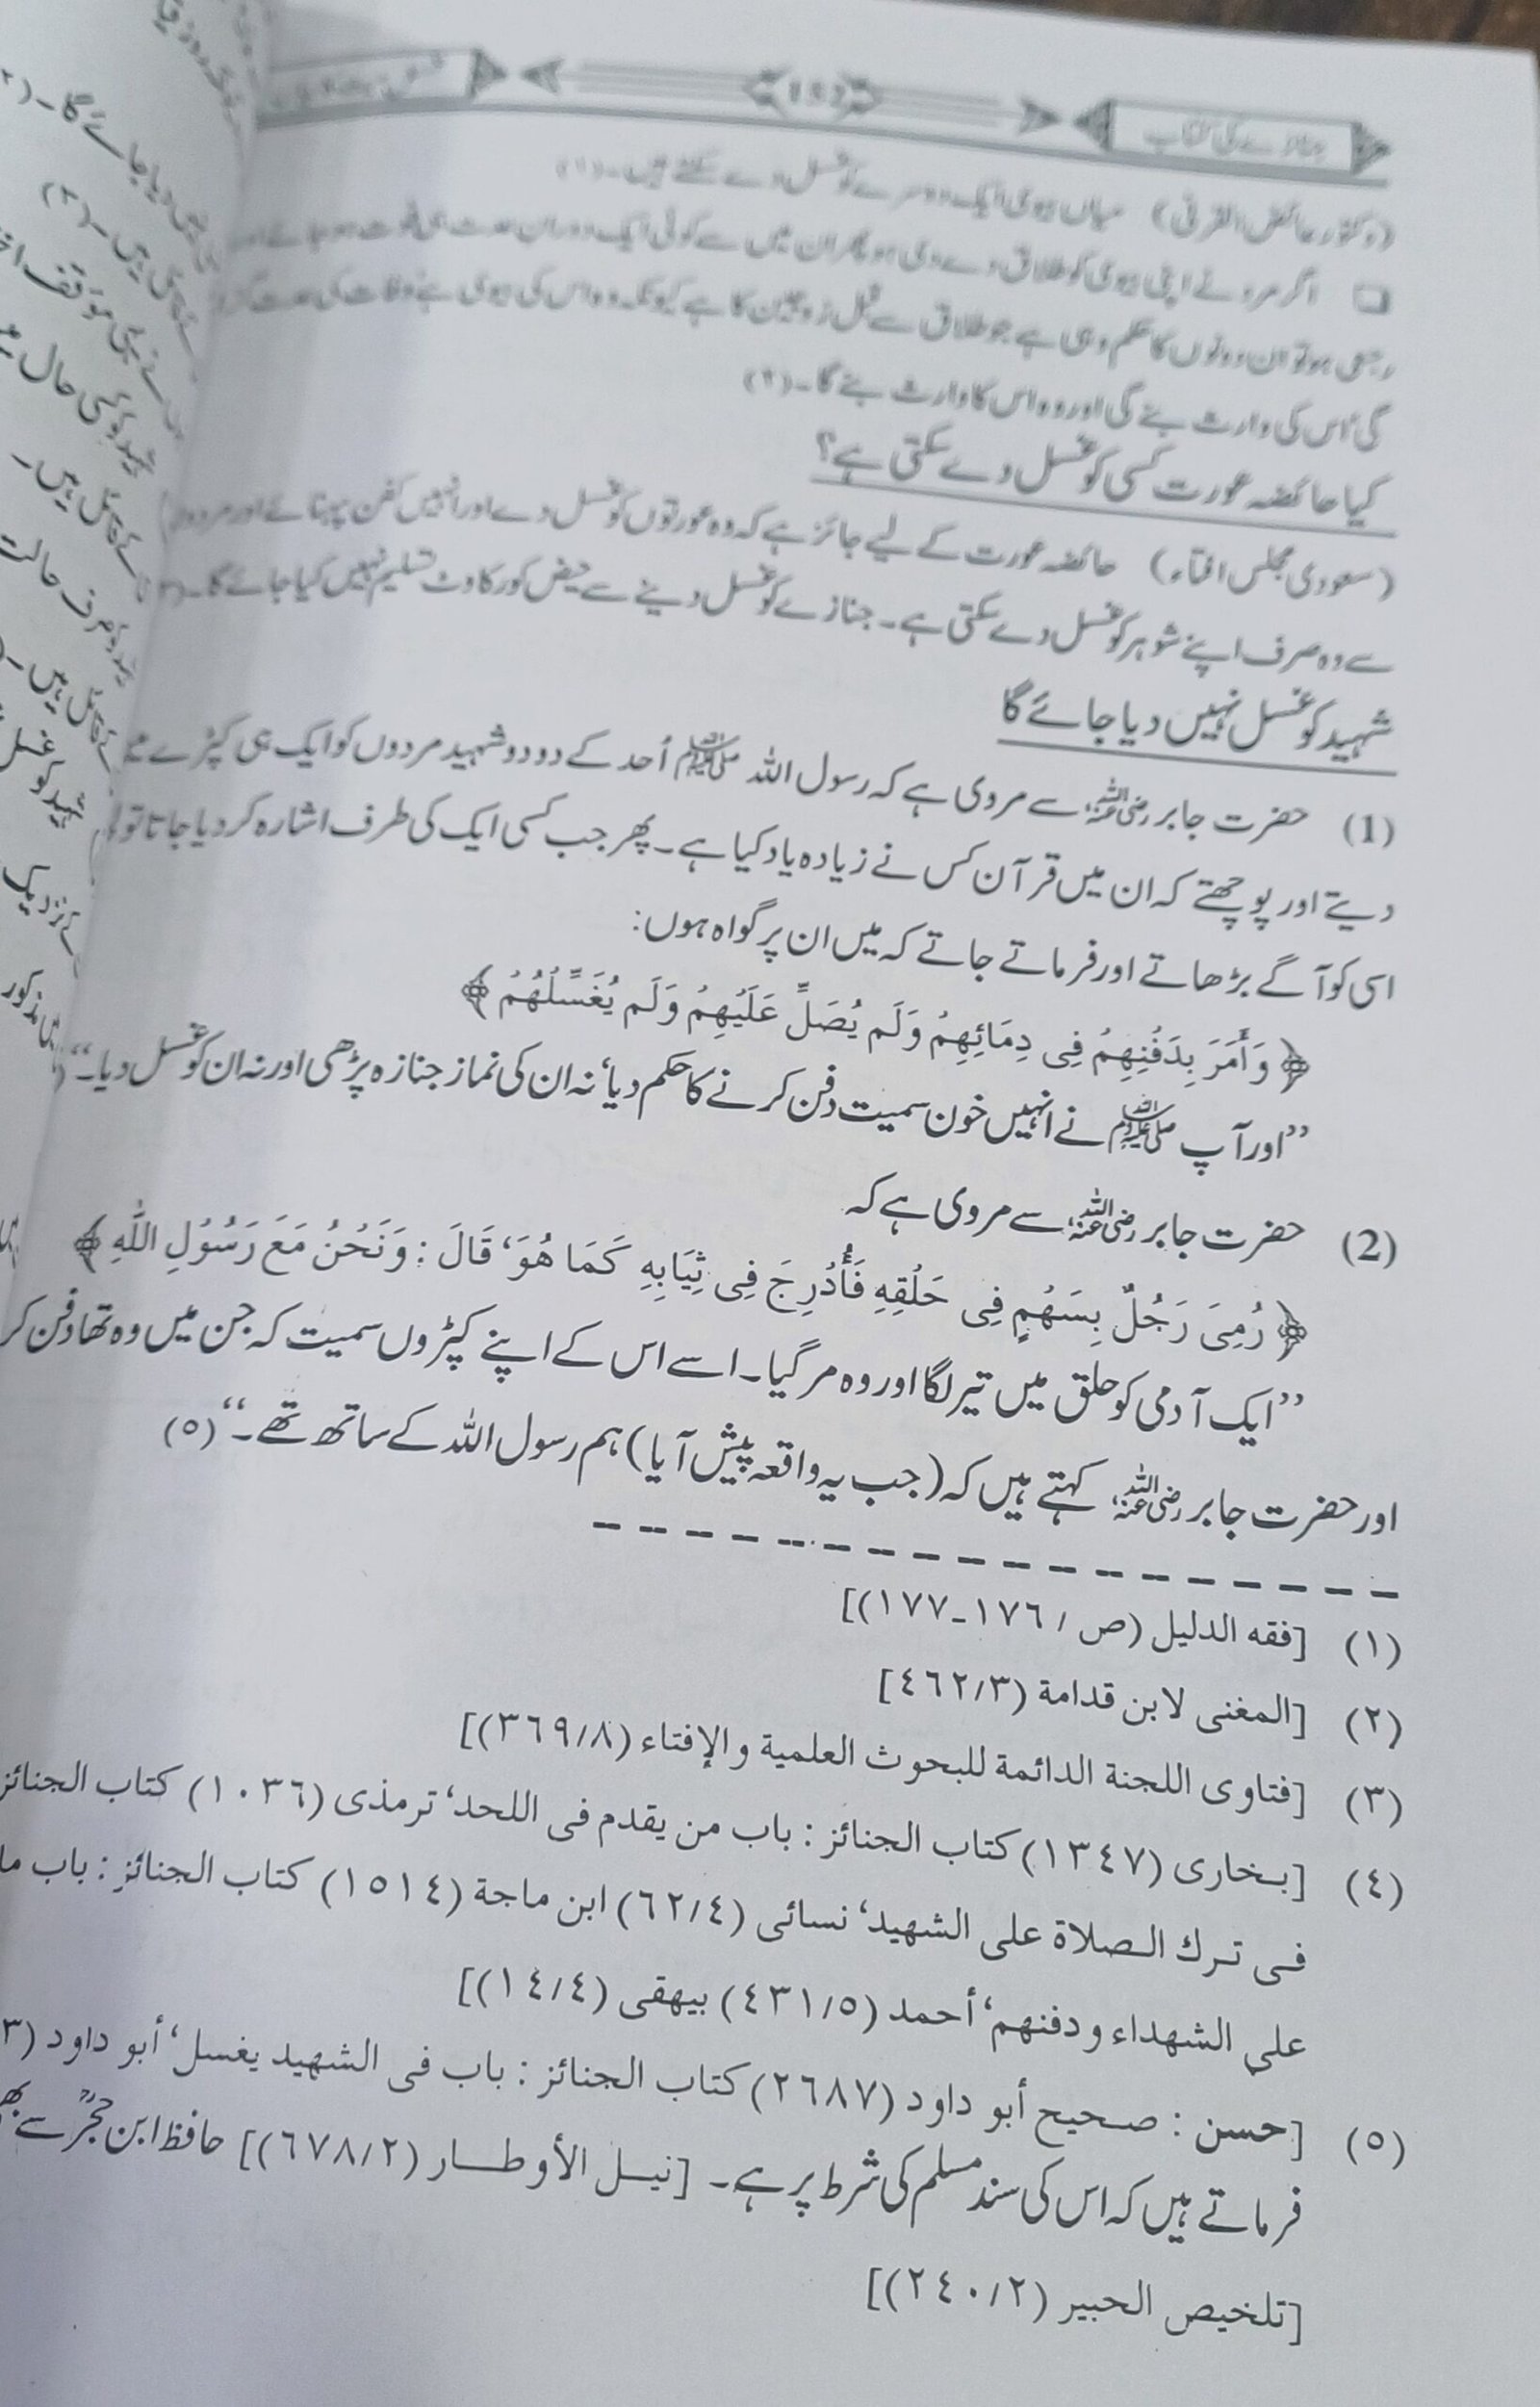 جنازے کی کتاب
(دکتور عائض القرنی) میاں بیوی ایک دوسرے کو غسل دے سکتے ہیں۔(۱)
❏ اگر مرد نے اپنی بیوی کو طلاق دے دی ہو پھر ان میں سے کوئی ایک دوران عدت ہی فوت ہو جائے اور
رجعی ہو تو ان دونوں کا حکم وہی ہے جو طلاق سے قبل زوجین کا ہے کیونکہ وہ اس کی بیوی ہے وفات کی عدت
گی اس کی وارث بنے گی اور وہ اس کا وارث بنے گا۔(۲)
کیا حائضہ عورت کسی کو غسل دے سکتی ہے؟
(سعودی مجلس افتاء) حائضہ عورت کے لیے جائز ہے کہ وہ عورتوں کو غسل دے اور انہیں کفن پہنائے اور مردوں
سے وہ صرف اپنے شوہر کو غسل دے سکتی ہے۔ جنازے کو غسل دینے سے حیض کو رکاوٹ تسلیم نہیں کیا جائے گا۔
شہید کو غسل نہیں دیا جائے گا
(1) حضرت جابر رضی اللہ عنہ سے مروی ہے کہ رسول اللہ ﷺ اُحد کے دو دو شہید مردوں کو ایک ہی کپڑے
دیتے اور پوچھتے کہ ان میں قرآن کس نے زیادہ یاد کیا ہے۔ پھر جب کسی ایک کی طرف اشارہ کر دیا جاتا تو
اسی کو آگے بڑھاتے اور فرماتے جاتے کہ میں ان پر گواہ ہوں:
﴿ وَأَمَرَ بِدَفْنِهِمْ فِى دِمَائِهِمْ وَلَم يُصَلِّ عَلَيْهِمْ وَلَم يُغَسِّلْهُمْ ﴾
”اور آپ ﷺ نے انہیں خون سمیت دفن کرنے کا حکم دیا‘ نہ ان کی نماز جنازہ پڑھی اور نہ ان کو غسل دیا۔“
(2) حضرت جابر رضی اللہ عنہ سے مروی ہے کہ
﴿ رُمِىَ رَجُلٌ بِسَهْمٍ فِى حَلْقِهِ فَأُدْرِجَ فِى ثِيَابِهِ كَمَا هُوَ‘ قَالَ : وَنَحْنُ مَعَ رَسُوْلِ اللّٰهِ ﴾
”ایک آدمی کو حلق میں تیر لگا اور وہ مر گیا۔ اسے اس کے اپنے کپڑوں سمیت کہ جن میں وہ تھا دفن کر
اور حضرت جابر رضی اللہ عنہ کہتے ہیں کہ (جب یہ واقعہ پیش آیا) ہم رسول اللہ کے ساتھ تھے۔“ (٥)
(١) [فقه الدليل (ص / ١٧٦-١٧٧)]
(٢) [المغنى لابن قدامة (٤٦٢/٣]
(٣) [فتاوى اللجنة الدائمة للبحوث العلمية والإفتاء (٣٦٩/٨)]
(٤) [بخارى (١٣٤٧) كتاب الجنائز : باب من يقدم فى اللحد‘ ترمذى (١٠٣٦) كتاب الجنائز
فى ترك الصلاة على الشهيد‘ نسائى (٦٢/٤) ابن ماجة (١٥١٤) كتاب الجنائز : باب ما
على الشهداء ودفنهم‘ أحمد (٤٣١/٥) بيهقى (١٤/٤)]
(٥) [حسن : صحيح أبو داود (٢٦٨٧) كتاب الجنائز : باب فى الشهيد يغسل‘ أبو داود (٣
فرماتے ہیں کہ اس کی سند مسلم کی شرط پر ہے۔ [نيل الأوطار (٦٧٨/٢)] حافظ ابن حجرؒ سے
[تلخيص الحبير (٢٤٠/٢)]